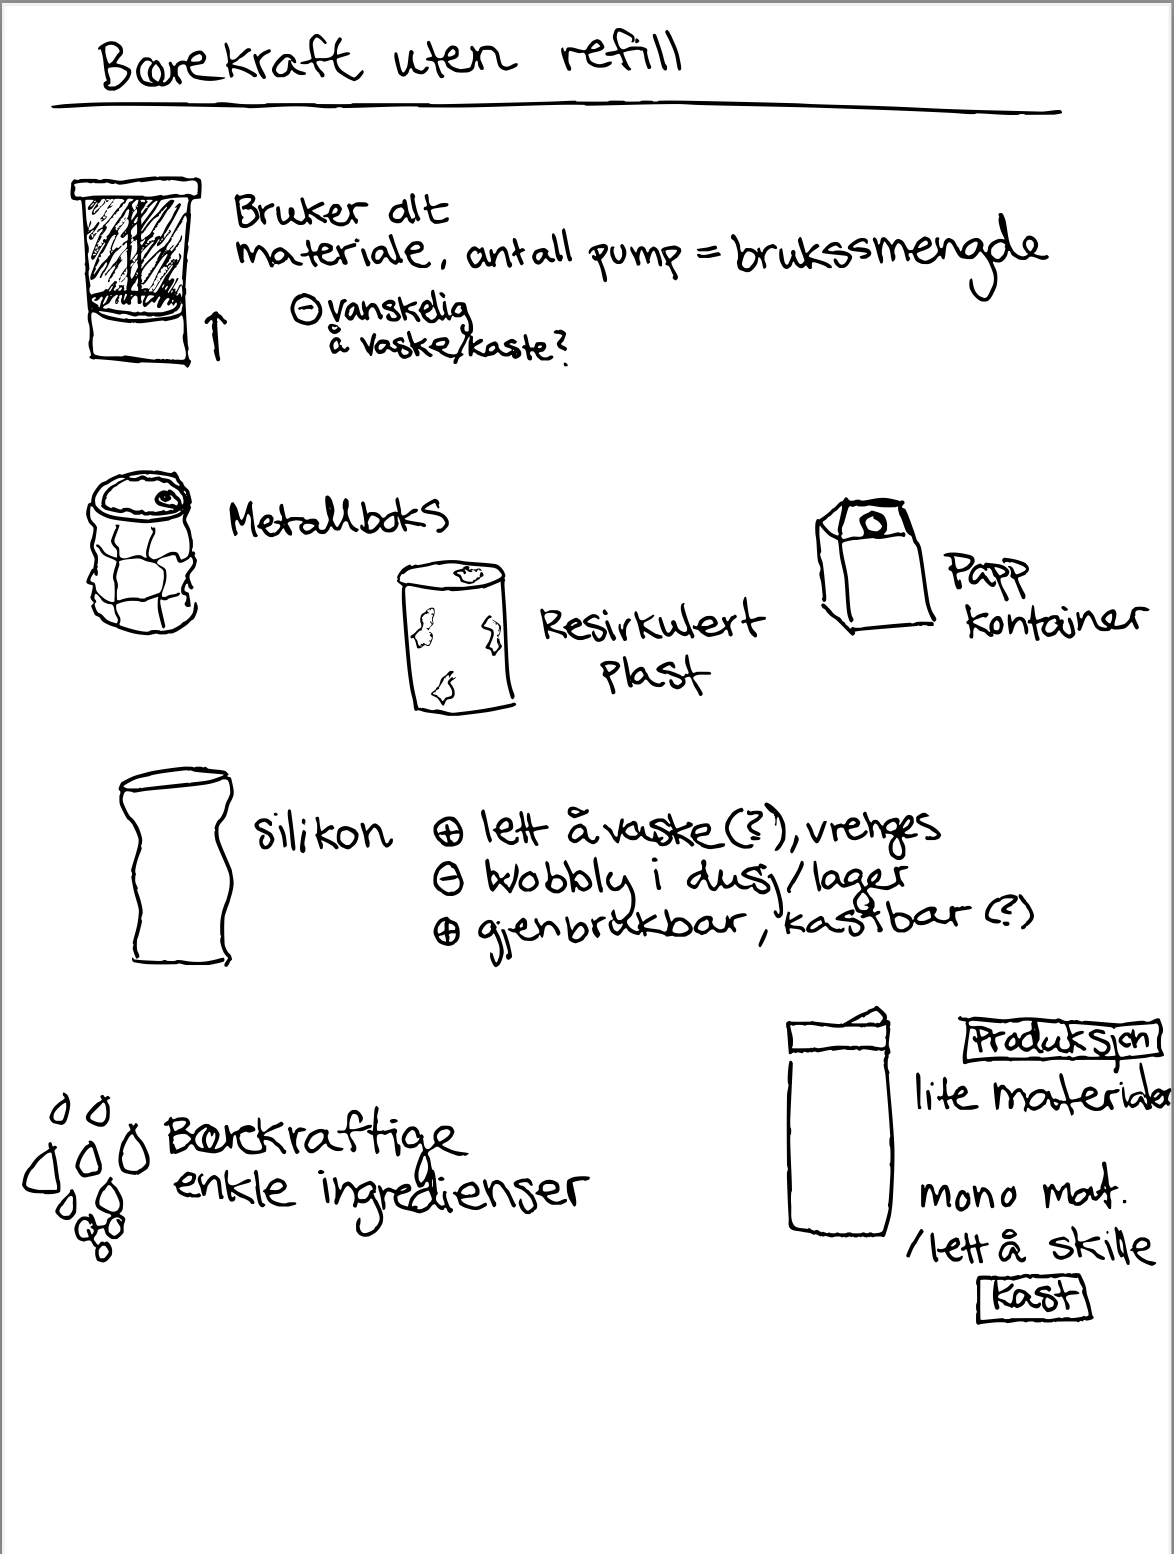 Bærekraft uten refill
Bruker alt
materiale, antall pump = brukssmengde
⊖ vanskelig
å vaske/kaste?
Metallboks
Resirkulert
plast
Papp
kontainer
silikon
⊕ lett å vaske (?), vrenges
⊖ wobbly i dusj/lager
⊕ gjenbrukbar, kastbar (?)
Bærekraftige
enkle ingredienser
Produksjon
lite materialer
mono mat.
/lett å skille
Kast